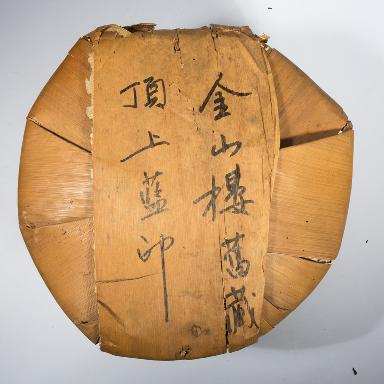 金山樓舊藏
頂上藍印